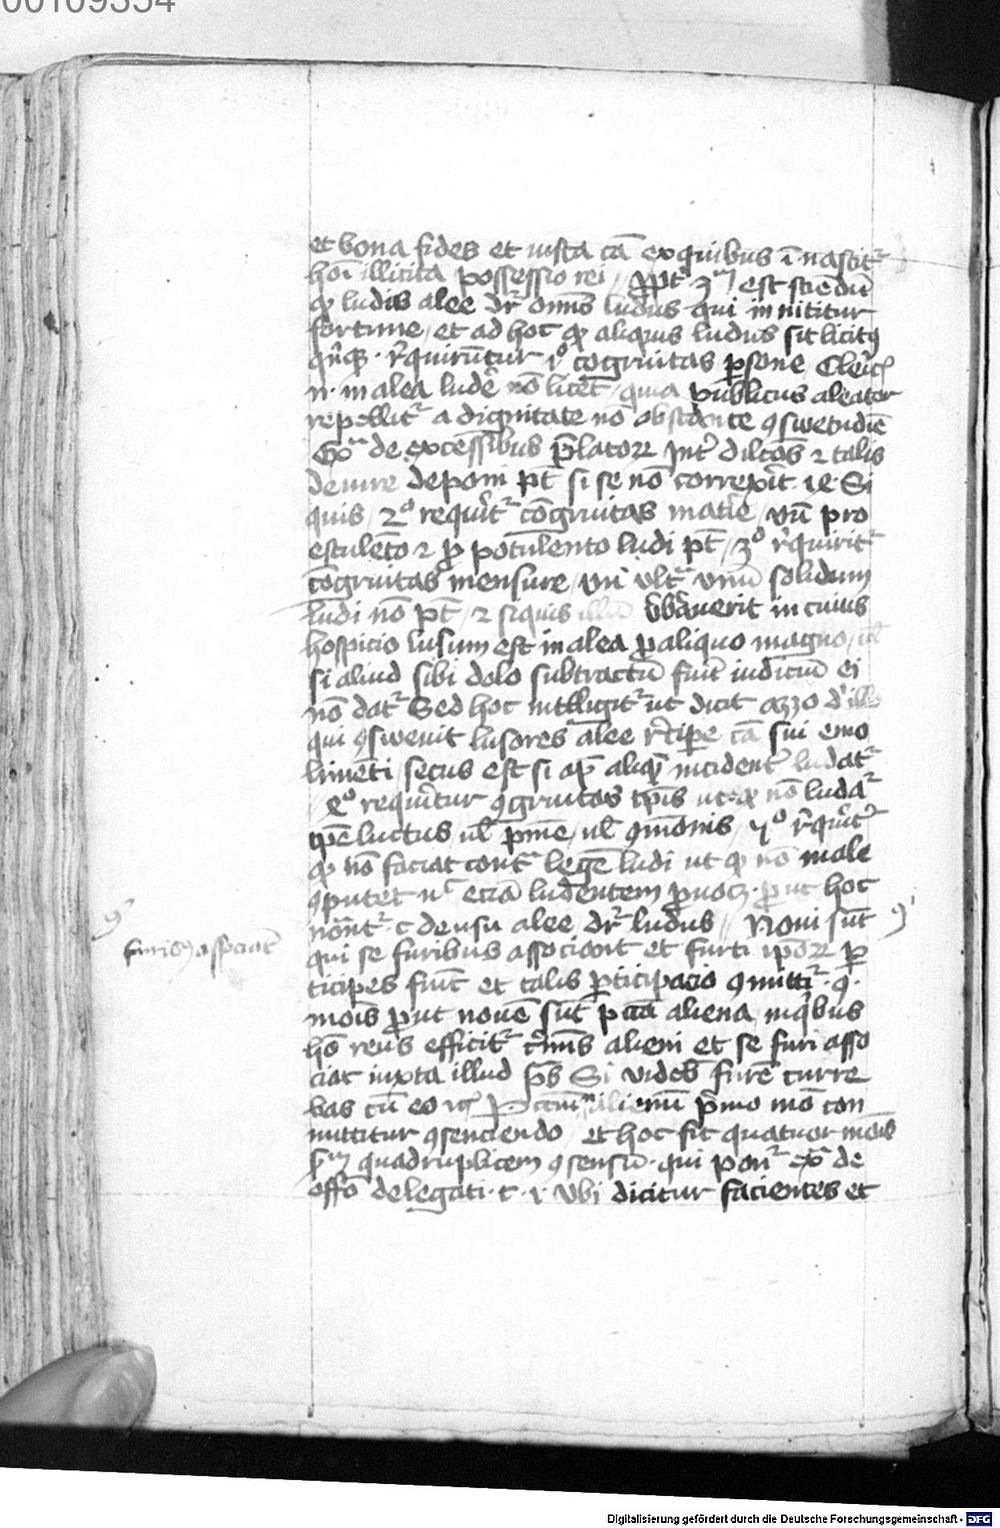 00109354
et bona fides et iusta cā ex quibus ī nascit᷑
hōi illicita possessio rei // ꝓpt᷑ qm̄ est sciēdū
ꝙ ludis alee dr̄ om̄is ludus qui innititur
fortune / et ad hoc ꝙ aliquis ludus sit licitꝰ
r̄quiruntur 1º cōgruitas ꝑsone
n̄ in alea ludē nō licet / quia publicus aleator
repellit᷑ a dignitate nō obstante ꝯswetudīe
Ex̄ de excessibus p̄latoꝝ Int᷑ dil̄cos ⁊ talis
de iure deponi pt̄ si se nō correx̄it Si
quis / 2º requirit᷑ cōgruitas mat̄ie / vn̄ pro
esculēto ⁊ ꝓ potulento ludi pt̄ / 3º r̄quirit᷑
cōgruitas mensure / vn̄ vlt᷑ vnū solidum
ludi nō pt̄ / ⁊ siquis v̄b̄auerit in cuius
hospicio lusum est in alea ꝓ aliquo magno / ul̄
si aliud sibi dolo subtractū fuit iudiciū ei
nō dat᷑ Sed hoc intelligit᷑ ut dicit azzo d̄ illo
qui ꝯsweuit lusores alee r̄cipe cā sui emo
limēti secus est si ap̄ aliq̄ incident᷑ ludat᷑
/ 4º requiritur ꝯgruitas tp̄is ut ꝙ nō ludat᷑
tp̄e luctus ul̄ / 5º r̄quirit᷑
ꝙ nō faciat contᷓ legē ludi ut ꝙ nō male
ꝯputet ecia ludentem ꝓuocꝫ ꝓut hoc
c de usu alee dr̄ ludus // Noni sūt ꝯ
qui se furibus associant et furti ip̄oꝝ ꝑ
furibꝫ associant
ticipes fiūt et talis ꝑticipacio ꝯmittit᷑
mōis ꝓut nouē sūt pctā aliena in q̄bus
hō reus efficit᷑ alieni et se furi asso
ciat iuxta illud ps̄ Si videb̄ furē curre
bas cū eo ⁊c̄ alienū p̄mo mō con
mittitur ꝯsenciendo / et hoc fit quatuor mōis
sm̄ quadruplicem ꝯsensū qui pon̄ ex̄ de
offō delegati c 1 Vbi dicitur facientes et
Digitalisierung gefördert durch die Deutsche Forschungsgemeinschaft - DFG